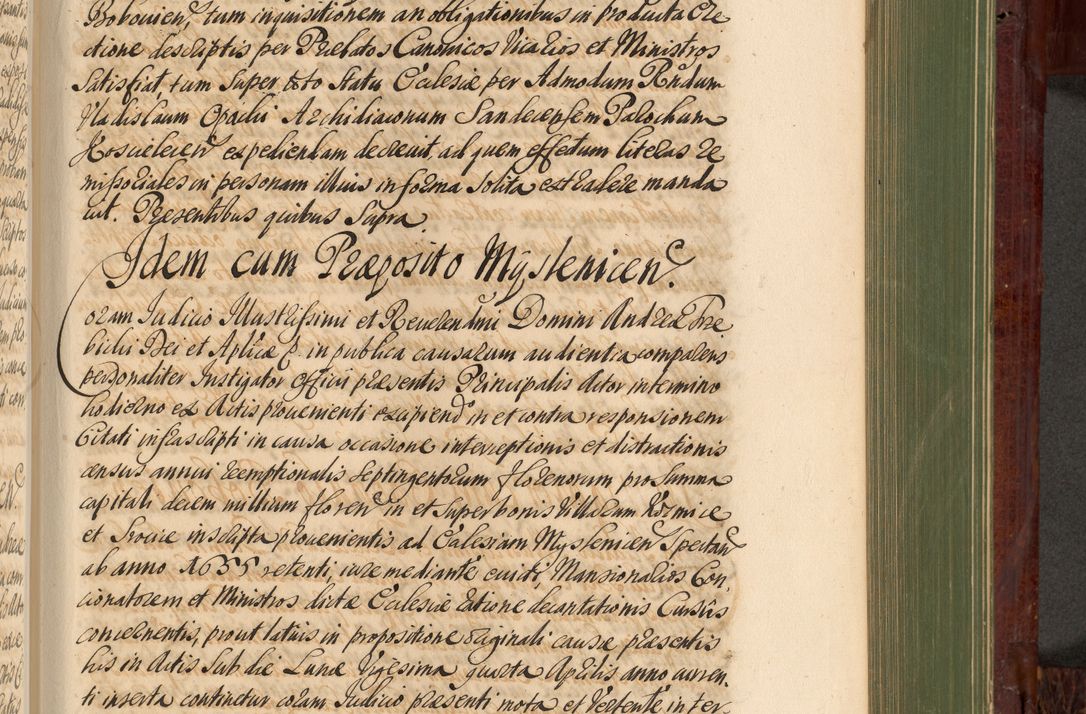 Bobovien, tum inquisitionem an obligationibus in producta Ere
ctione descriptis per Prælatos Canonicos Vicarios et Ministros
satisfiat, tum super toto statu Ecclesiæ per Admodum Rndum
Vladislaum Opacki Archidiaconum Sandecensem Parochum
expediendam decrevit, ad quem effectum literas re
missoriales in personam illius in forma solita extradere manda
vit. Præsentibus quibus supra.
Idem cum Præposito Myslenicen.
oram Iudicio Illustrissimi et Reverendmi Domini Andreæ Trze
bicki Dei et Aplicæ S. in publica causarum audientia comparens
personaliter Instigator officii præsentis Principalis Actor in termino
hodierno ex Actis provenienti excipiend in et contra responsionem
Citati infrascripti in causa occasione interceptionis et distractionis
census annui reemptionalis septingentorum florenorum pro summa
capitali decem millium floren in et super bonis Villarum
et inscripta provenientis ad Ecclesiam Myslenicen Spectan
ab anno 1655 retenti, iure mediante evicti, Mansionarios Con
cionatorem et Ministros dictæ Ecclesiæ ratione decantationis Cursus
concernentis, prout latius in propositione originali causæ præsentis
his in Actis sub die Lunæ Vigesima quarta Aprilis anno curren
ti inserta continetur coram Iudicio præsenti mota et Vertente inter